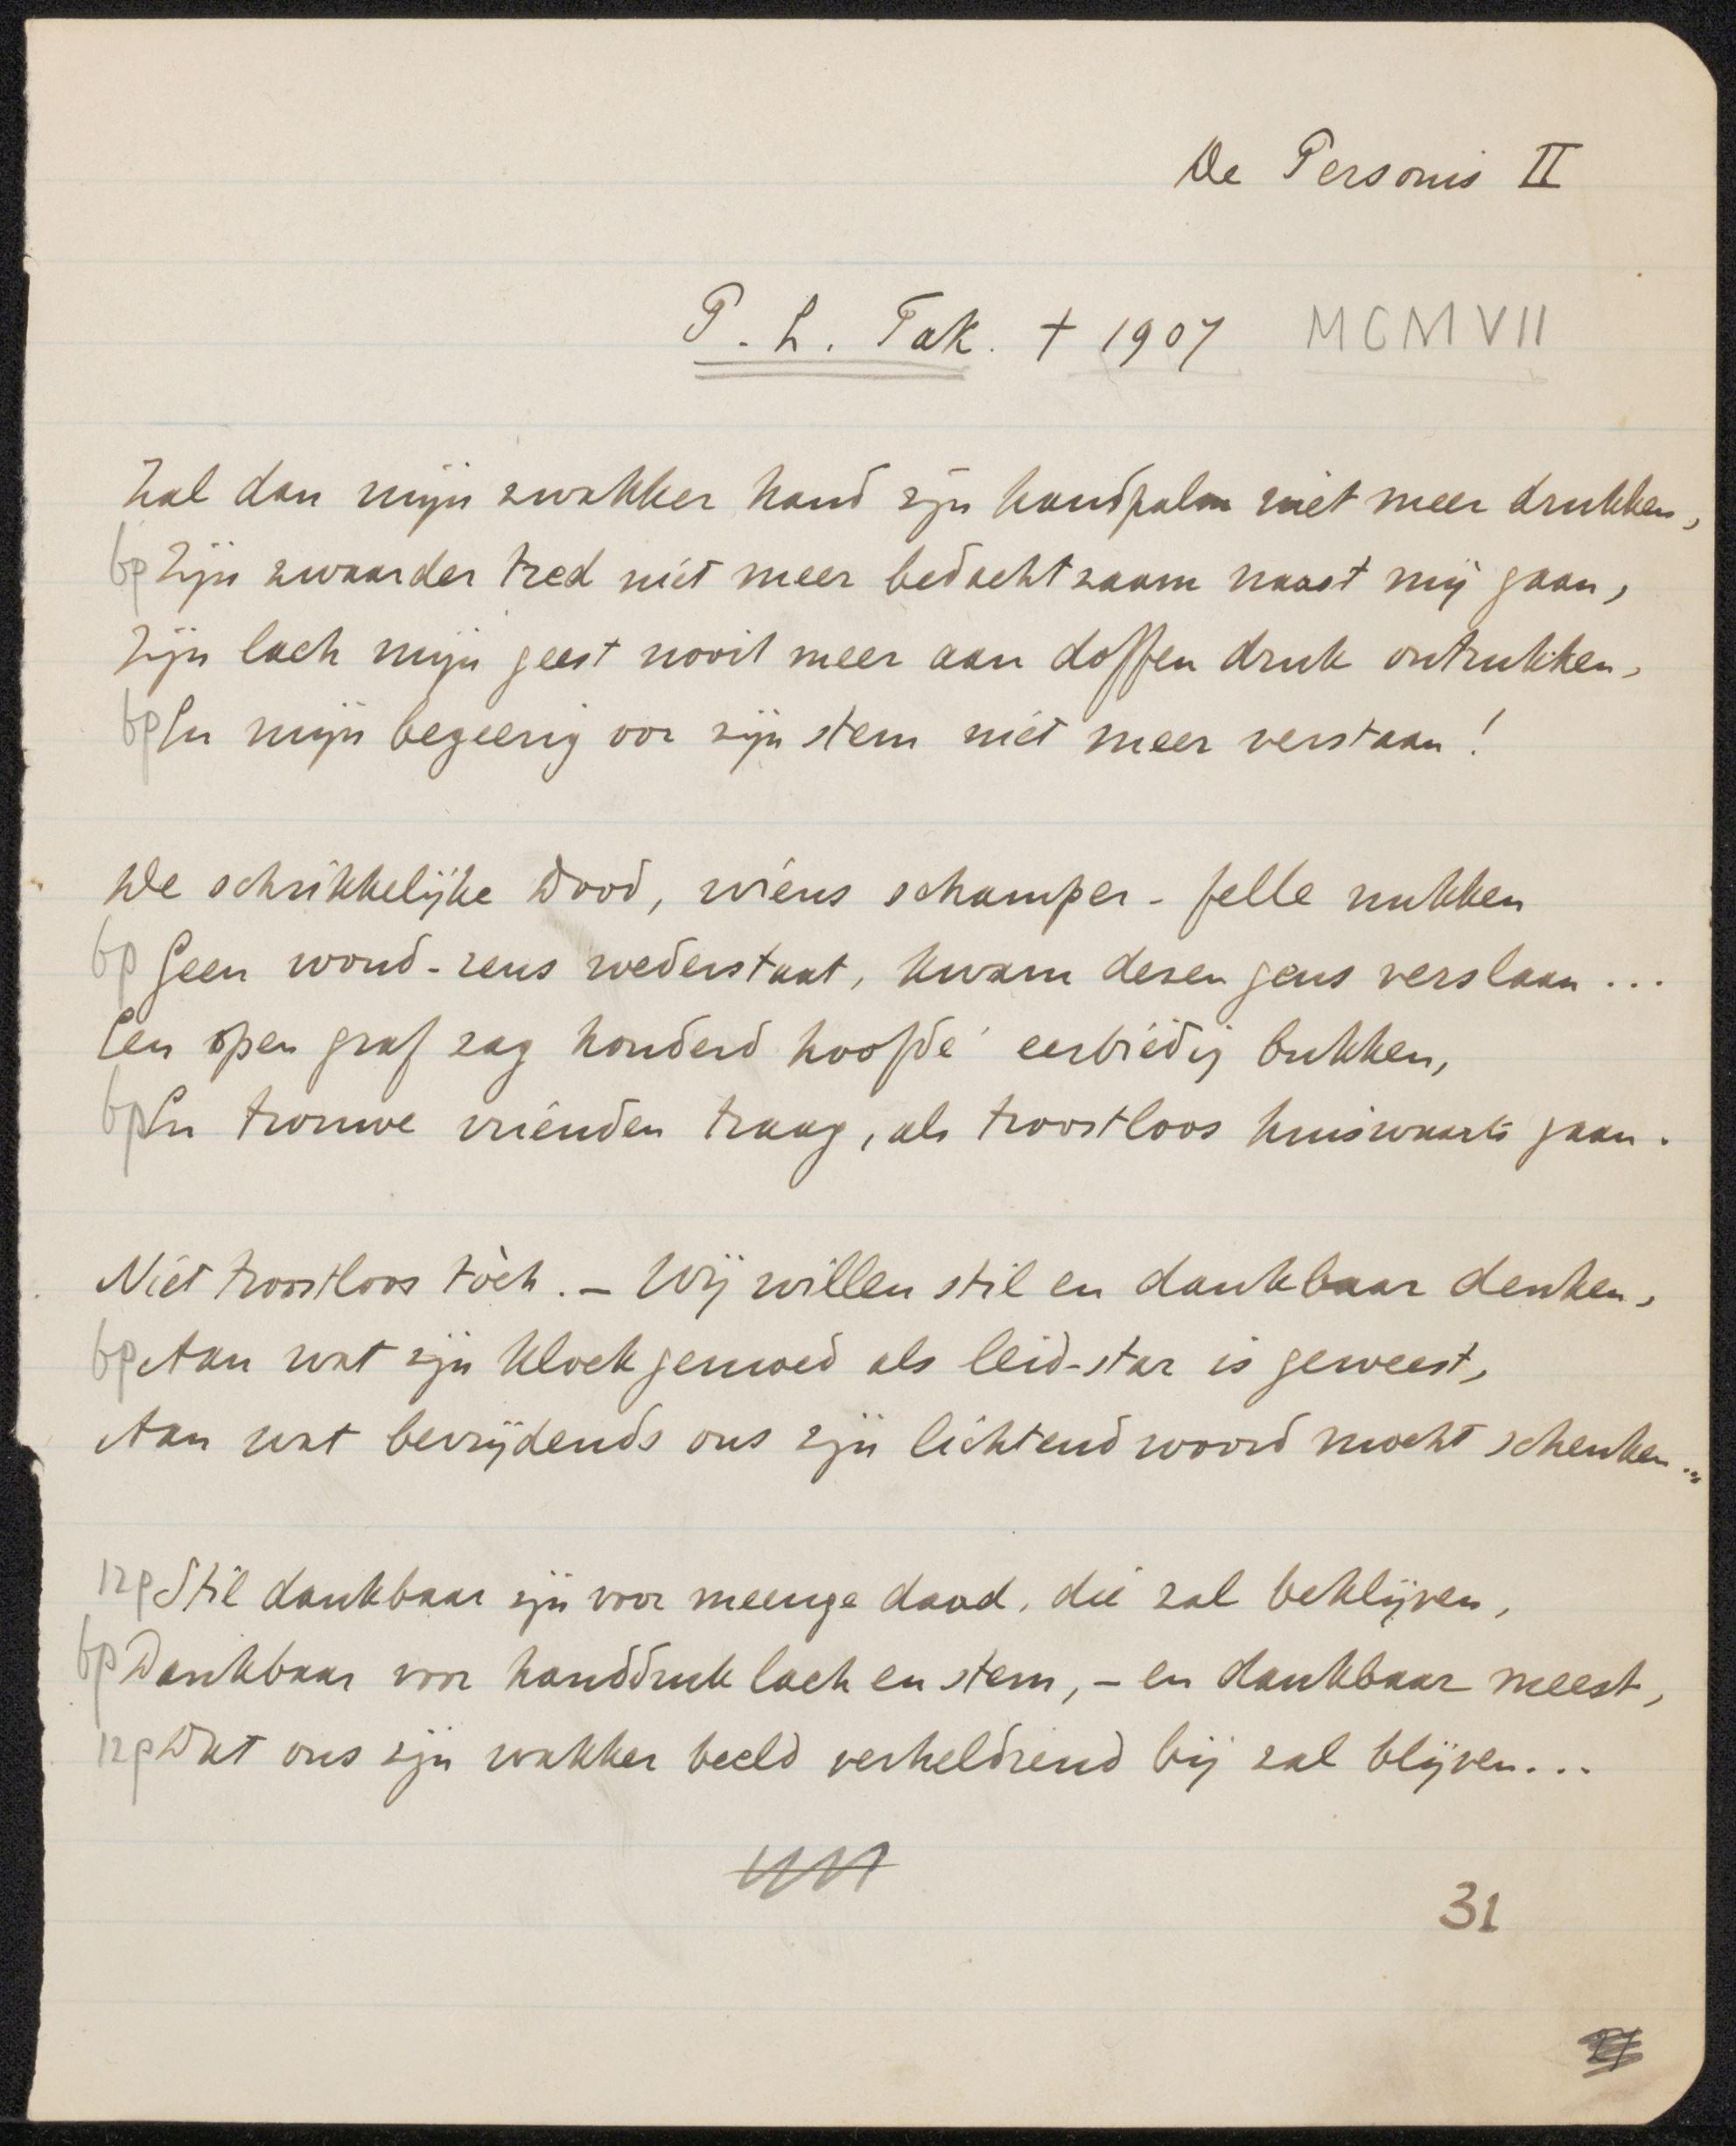 De Personis II
P. L. Tak. † 1907 MCMVII
Zal dan mijn zwakker hand zijn handpalm niet meer drukken,
6p Zijn zwaarder tred niet meer bedachtzaam naast mij gaan,
Zijn lach mijn geest nooit meer aan doffen druk ontrukken,
6p En mijn begeerig oor zijn stem niet meer verstaan!
De schrikkelijke Dood, wiens schamper-felle nukken
6p Geen wond-zens wederstaat, kwam dezen gens verslaan...
Een open graf zag honderd hoofde' eerbiedig bukken,
6p En trouwe vrienden traag, als troostloos huiswaarts gaan.
Niet troostloos tòch. – Wij willen stil en dankbaar denken,
6p Aan wat zijn kloek gemoed als leid-star is geweest,
Aan wat bevrijdends ons zijn lichtend woord mocht schenken...
12p Stil dankbaar zijn voor meenge daad, die zal beklijven,
6p Dankbaar voor handdruk lach en stem, – en dankbaar meest,
12p Dat ons zijn wakker beeld verheldrend bij zal blijven...
31